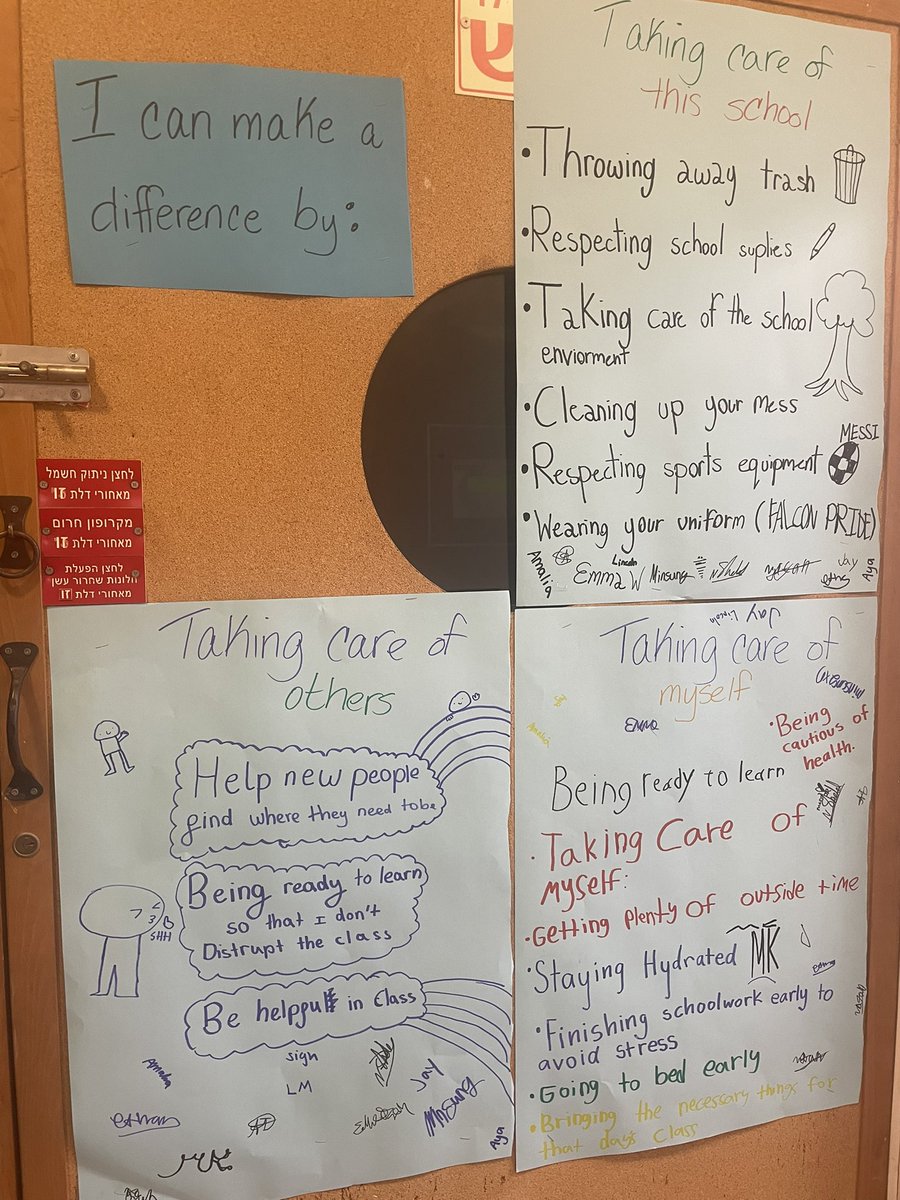 I can make a
difference by:
Taking care of
this school
•Throwing away trash
•Respecting school suplies
•Taking care of the school
enviorment
•Cleaning up your mess
MESSI
•Respecting sports equipment
•Wearing your uniform (FALCON PRIDE)
Amalia
Emma W
Lincoln
Minsung
Jay
Aya
לחצן ניתוק חשמל
מאחורי דלת זו
מקרופון חרום
מאחורי דלת זו
לחצן הפעלת
חלונות שחרור עשן
מאחורי דלת זו
Taking care of
others
Help new people
find where they need to be
Being ready to learn
so that I don't
Distrupt the class
SHH
Be helpful in Class
Amalia
sign
LM
Jay
Minsung
ethan
Aya
Jay Lincoln
Taking care of
myself
Minsung
Emma
Amalia
•Being
cautious of
health.
Being ready to learn
•Taking Care of
myself:
•Getting plenty of outside time
•Staying Hydrated
MK
•Finishing schoolwork early to
avoid stress
•Going to bed early
•Bringing the necessary things for
that days class